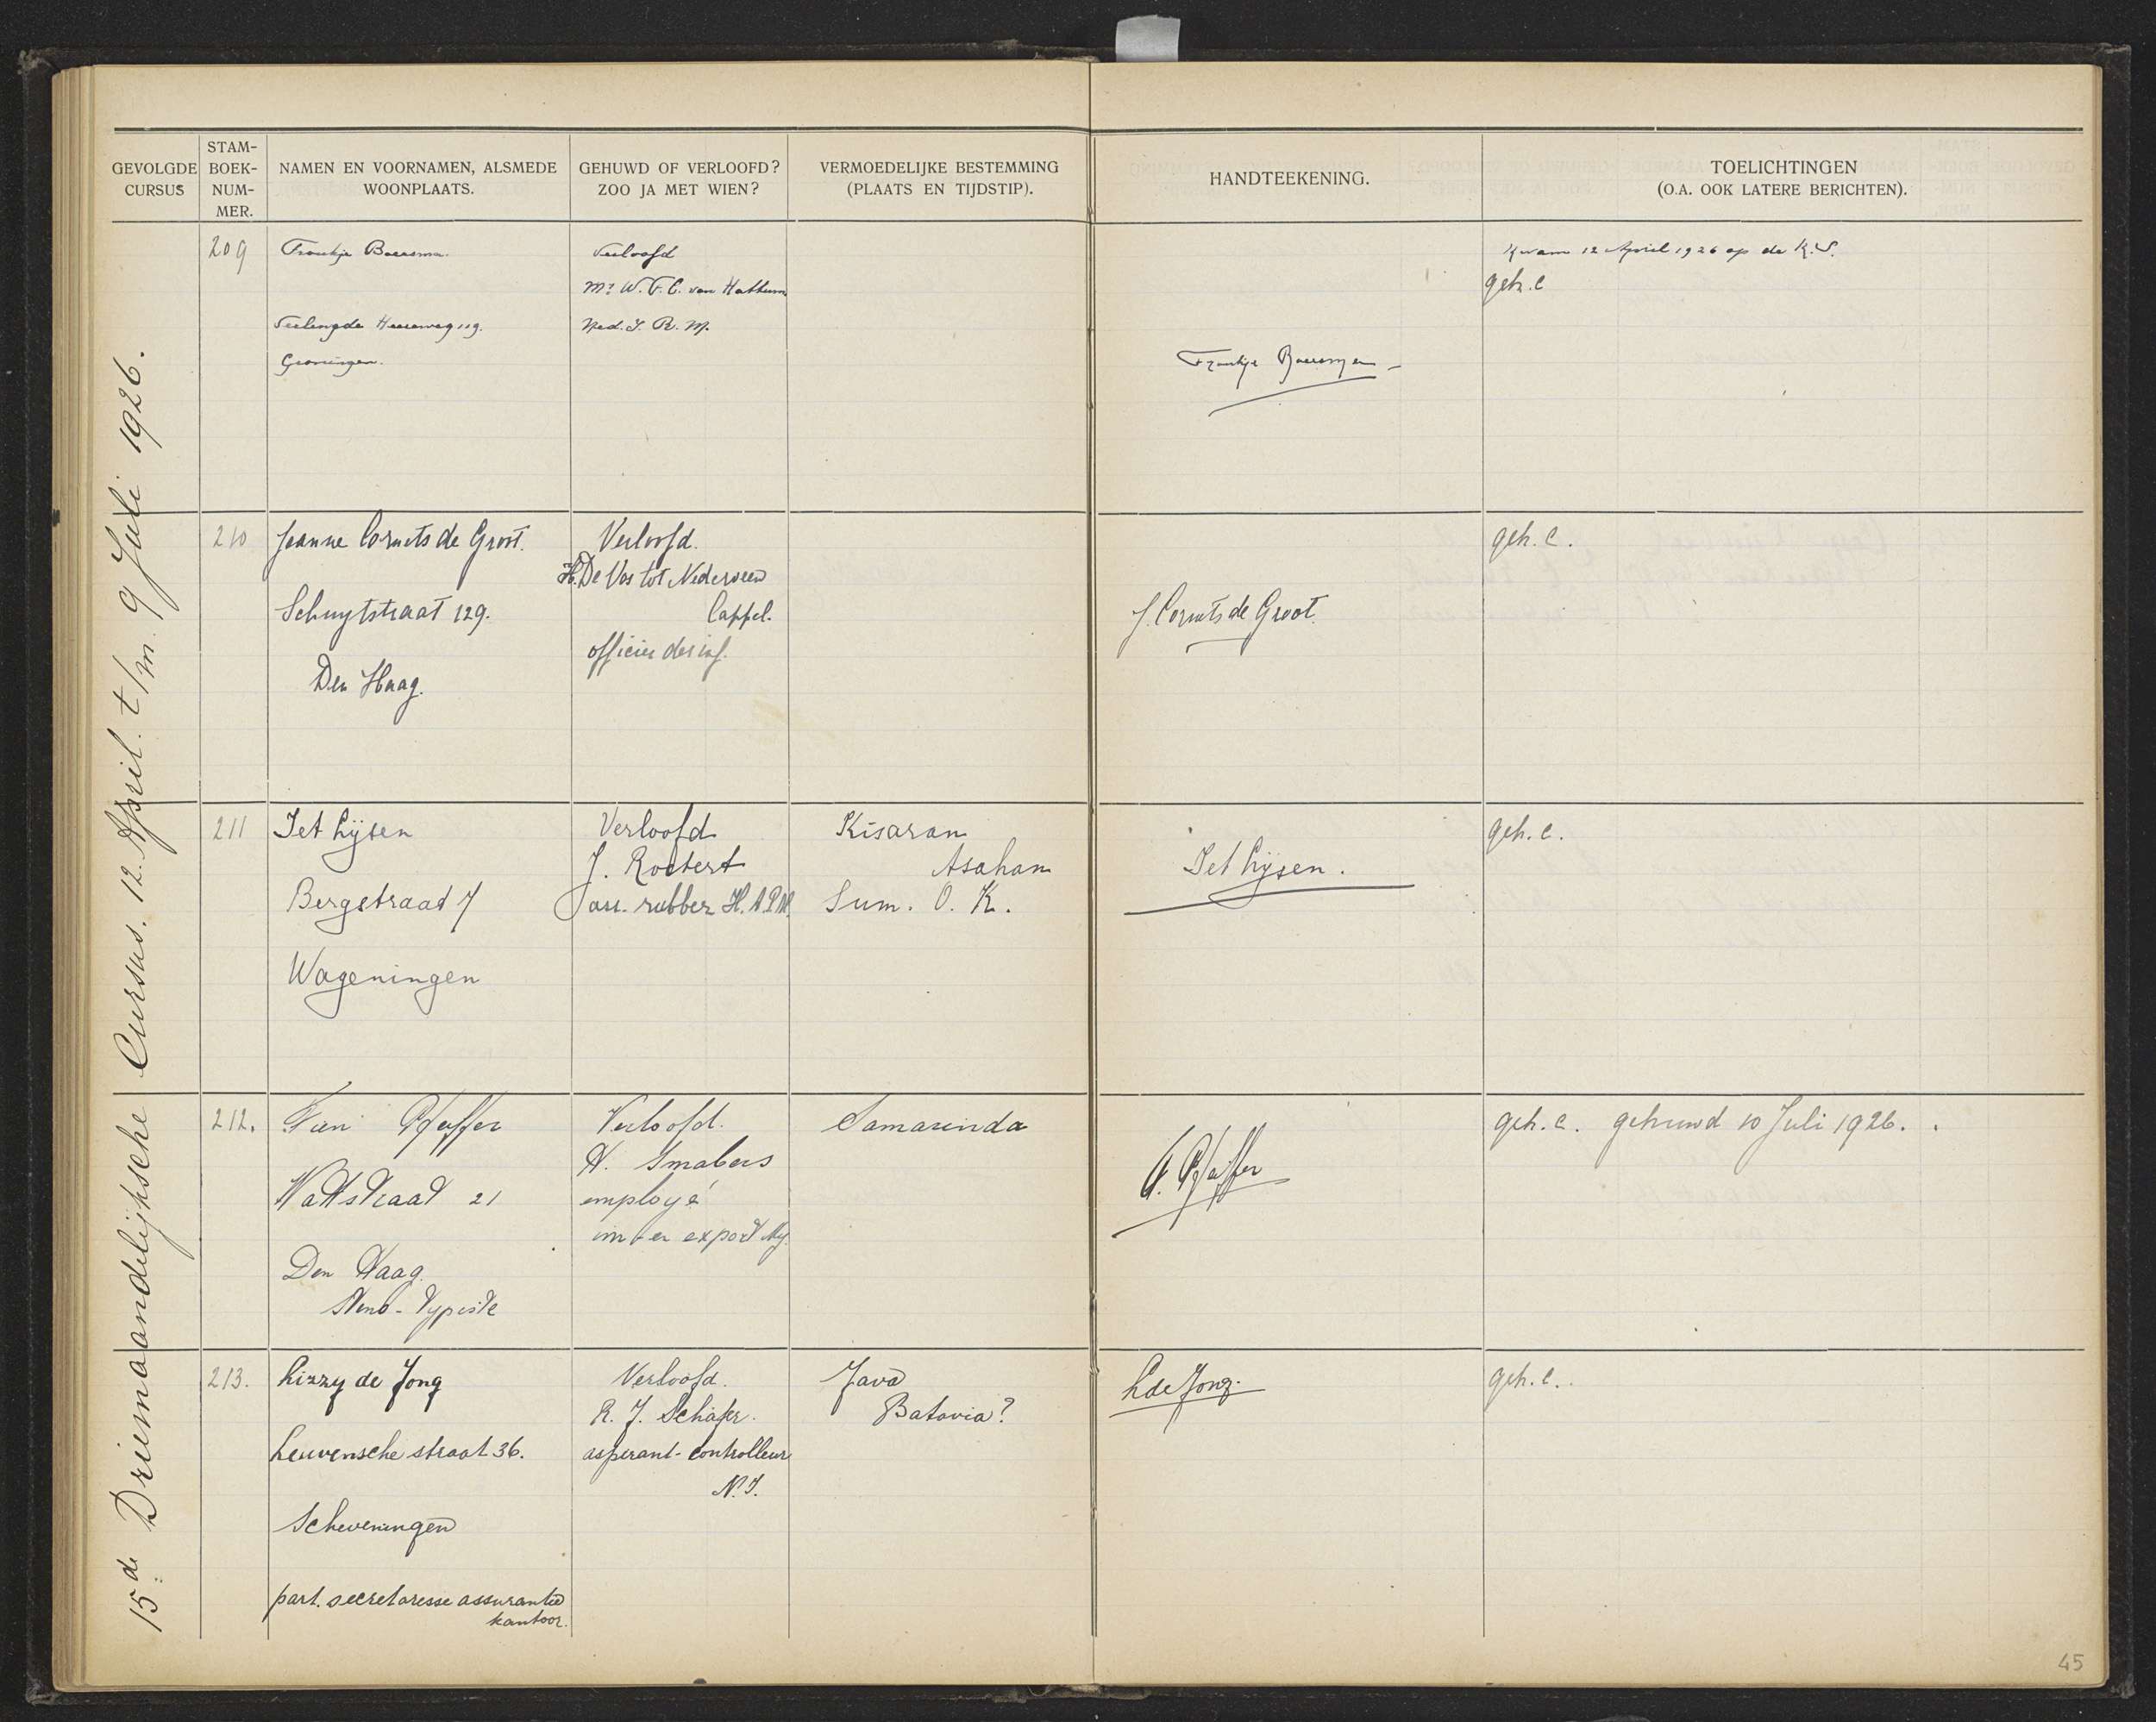 GEVOLGDE CURSUS
STAM-BOEK-NUM-MER.
NAMEN EN VOORNAMEN, ALSMEDE WOONPLAATS.
GEHUWD OF VERLOOFD? ZOO JA MET WIEN?
VERMOEDELIJKE BESTEMMING (PLAATS EN TIJDSTIP).
HANDTEEKENING.
TOELICHTINGEN (O.A. OOK LATERE BERICHTEN).
15de Driemaandelijksche Cursus. 12 April t/m. 9 Juli 1926.
209
Froukje Boersma.
Verlengde Heereweg 119.
Groningen.
Verloofd
Mr W. F. C. van Hattum
Ned. I. R. M.
Froukje Boersma
Kwam 12 April 1926 op de K.S.
geh. C
210
Jeanne Cornets de Groot.
Schuytstraat 129.
Den Haag.
Verloofd.
H. De Vos tot Nederveen
Cappel.
officier der inf.
J. Cornets de Groot.
geh. C.
211
Jet Lijsen
Bergstraat 7
Wageningen
Verloofd
J. Roetert
ass. rubber H.A.P.M.
Kisaran
Asahan
Sum. O. K.
Jet Lijsen.
geh. C.
212.
Fien Pfeiffer
Wattstraat 21
Den Haag.
Steno-Typiste
Verloofd.
H. Smabers
employé
im en export My.
Samarinda
F. Pfeiffer
geh. C. gehuwd 10 Juli 1926.
213.
Lizzy de Jong
Leuvensche straat 36.
Scheveningen
part. secretaresse assurantie
kantoor.
Verloofd.
R. J. Schäfer.
aspirant-controlleur
N.I.
Java
Batavia?
L de Jong.
geh. C.
45